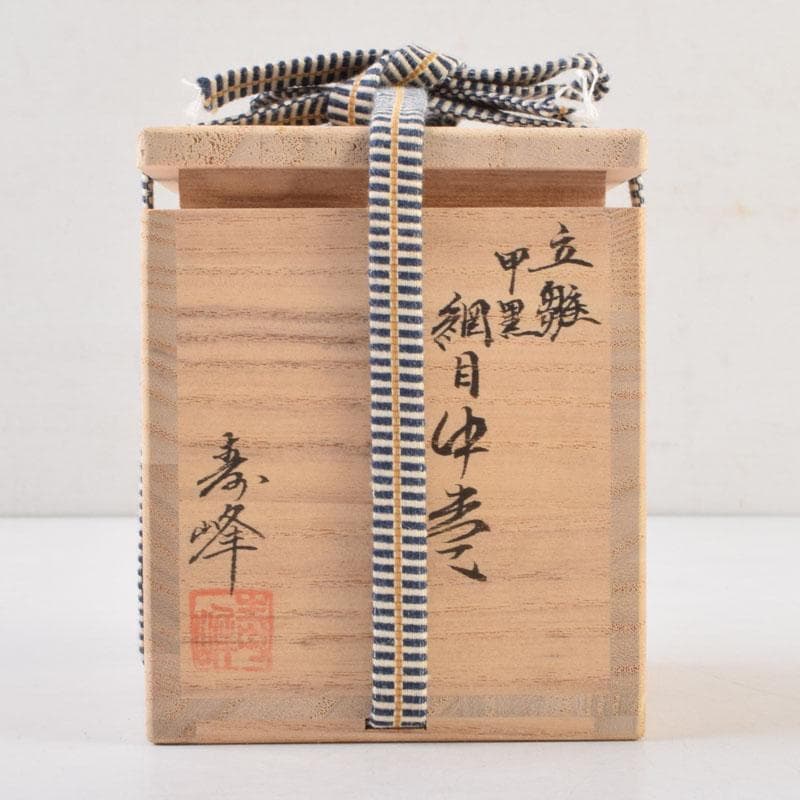 立雛
甲黒
網目中棗
寿峰